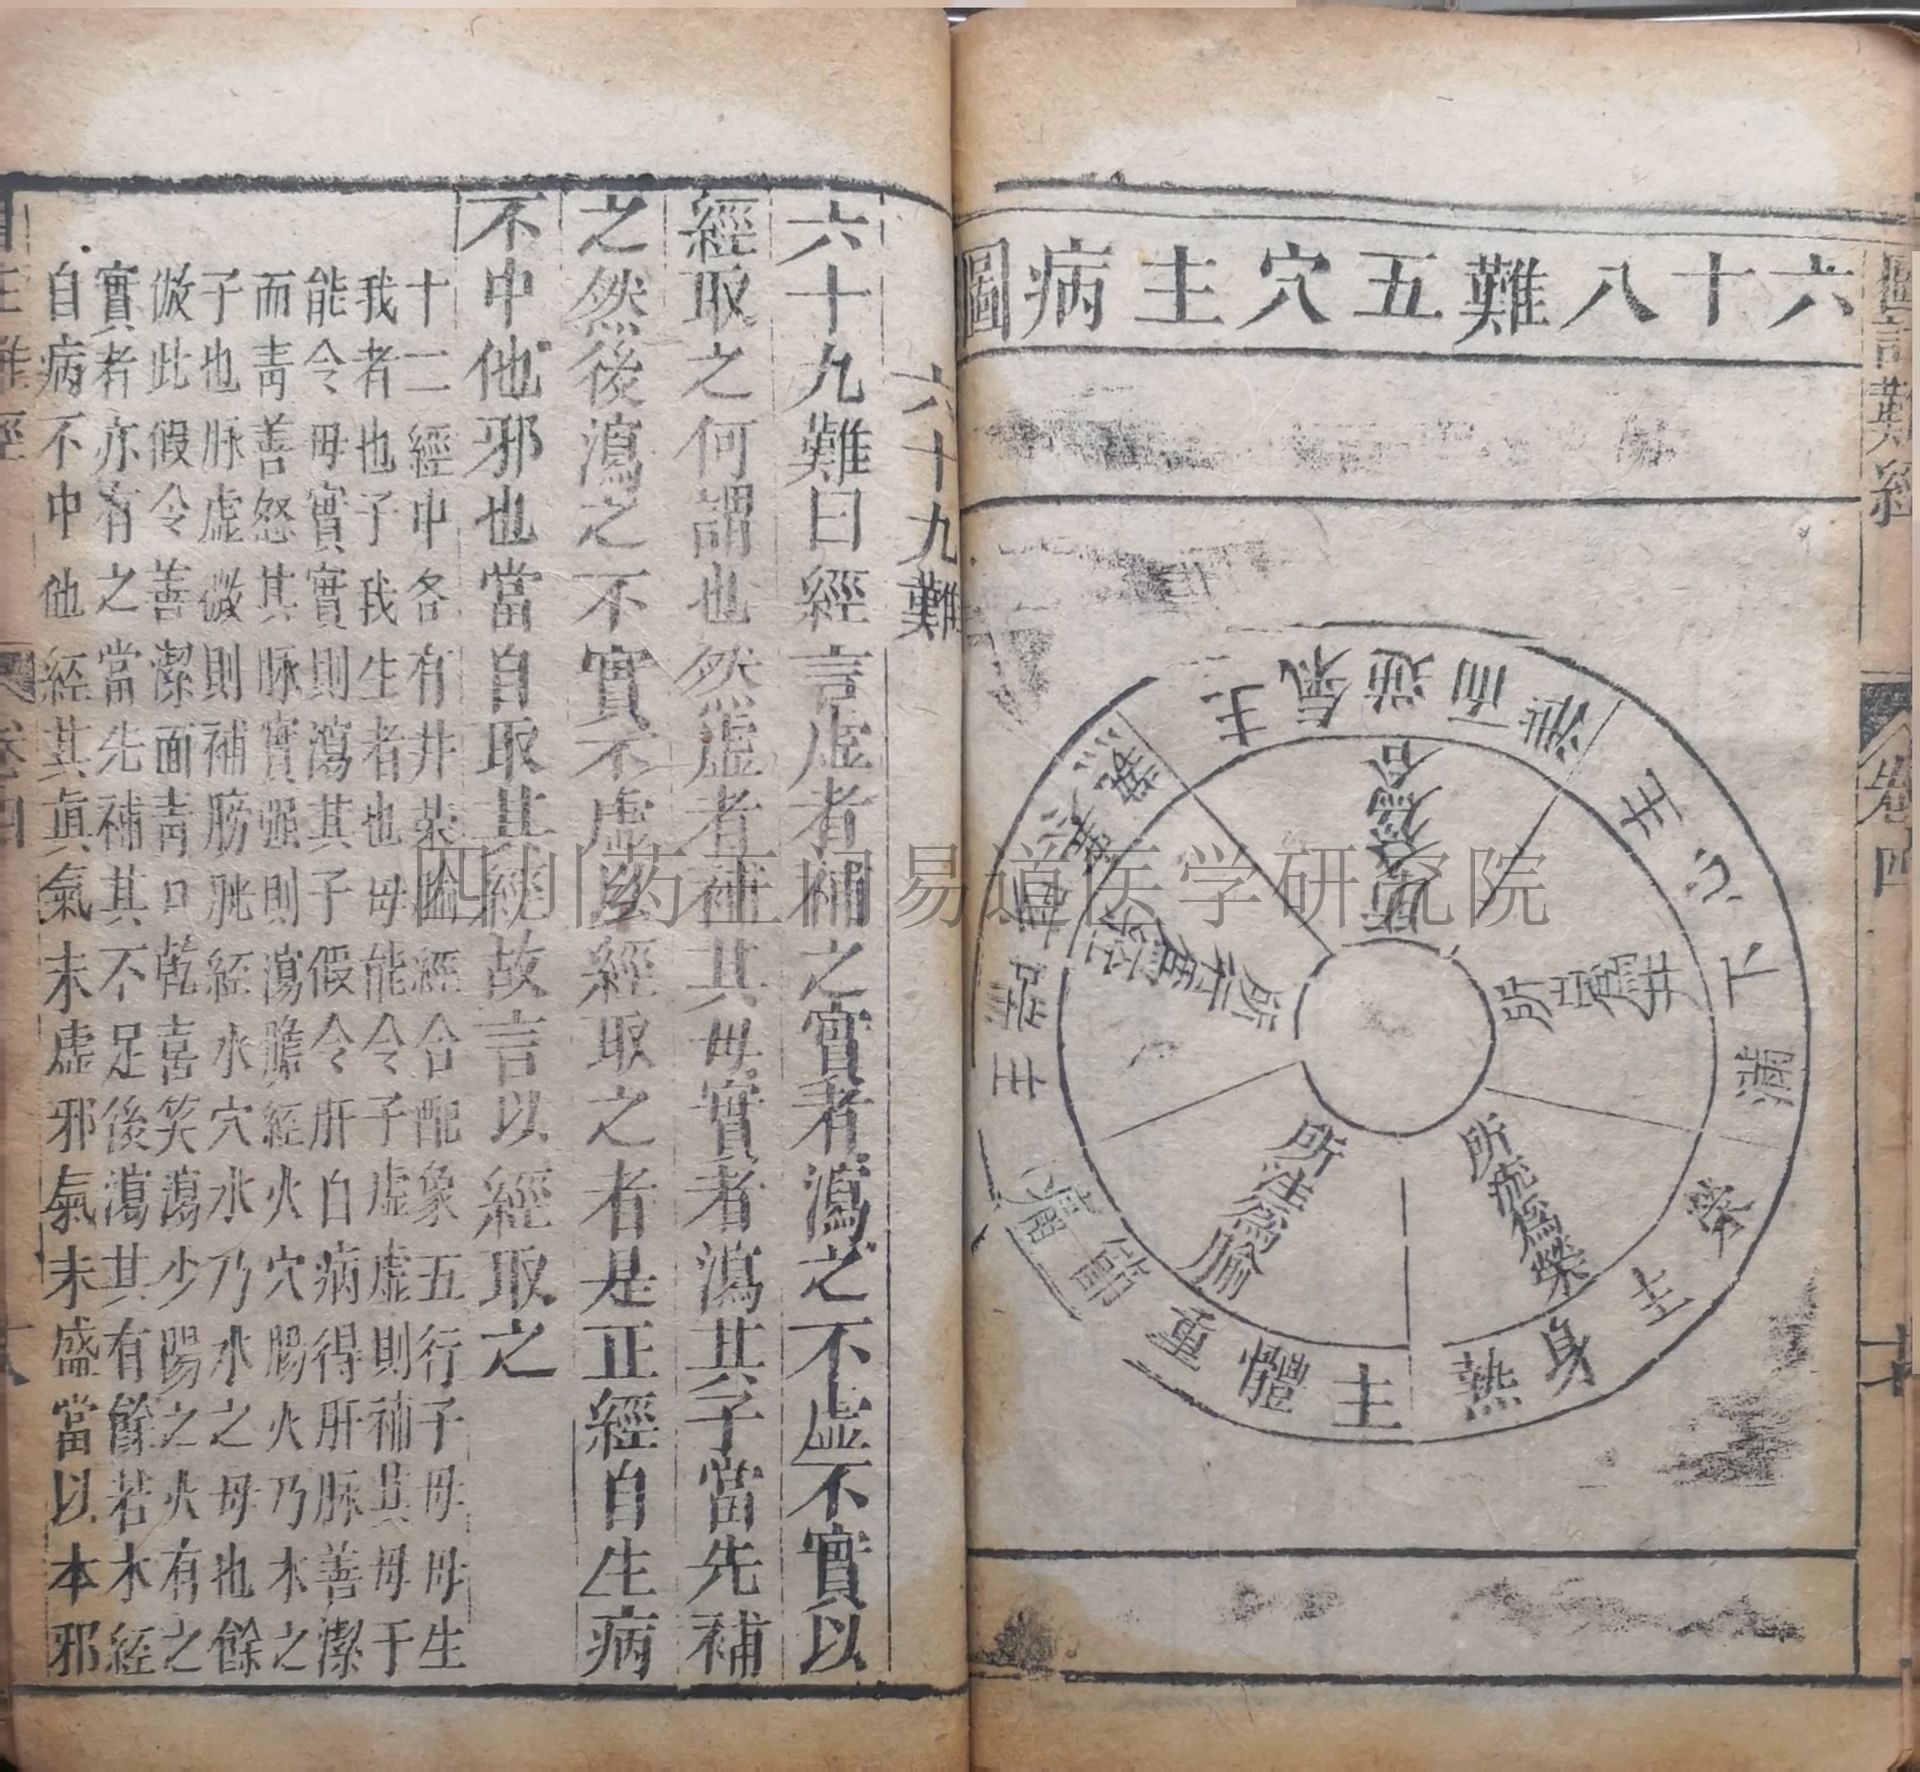 六十八難五穴主病圖
圖註難經
卷四
所出爲井
主心下滿
所流爲滎
滎主身熱
所注爲腧
主體重
節
所行爲經
主喘
所入爲合
主氣逆而泄
六十九難
六十九難曰經言虛者補之實者瀉之不虛不實以
經取之何謂也然虛者補其母實者瀉其子當先補
之然後瀉之不實不虛以經取之者是正經自生病
不中他邪也當自取其經故言以經取之
十二經中各有井滎腧經合配象五行子母母生
我者也子我生者也母能令子虛虛則補其母子
能令母實實則瀉其子假令肝白病得肝脉善潔
而青善怒其脉實强則瀉膽經火穴陽火乃木之
子也脉虛微則補膀胱經水穴水乃水之母也餘
倣此假令善潔面青口乾喜笑瀉少陽之火有之
實者亦有之當先補其不足後瀉其有餘若木經
自病不中他經其眞氣未虛邪氣未盛當以本邪
四川药王问易道医学研究院